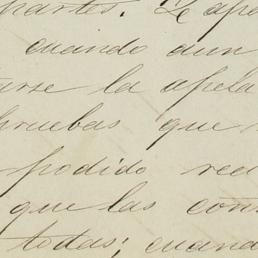 partes. Y apo
cuando aun
arse la apela
pruebas que
podido rec
que las con
todas; cuand